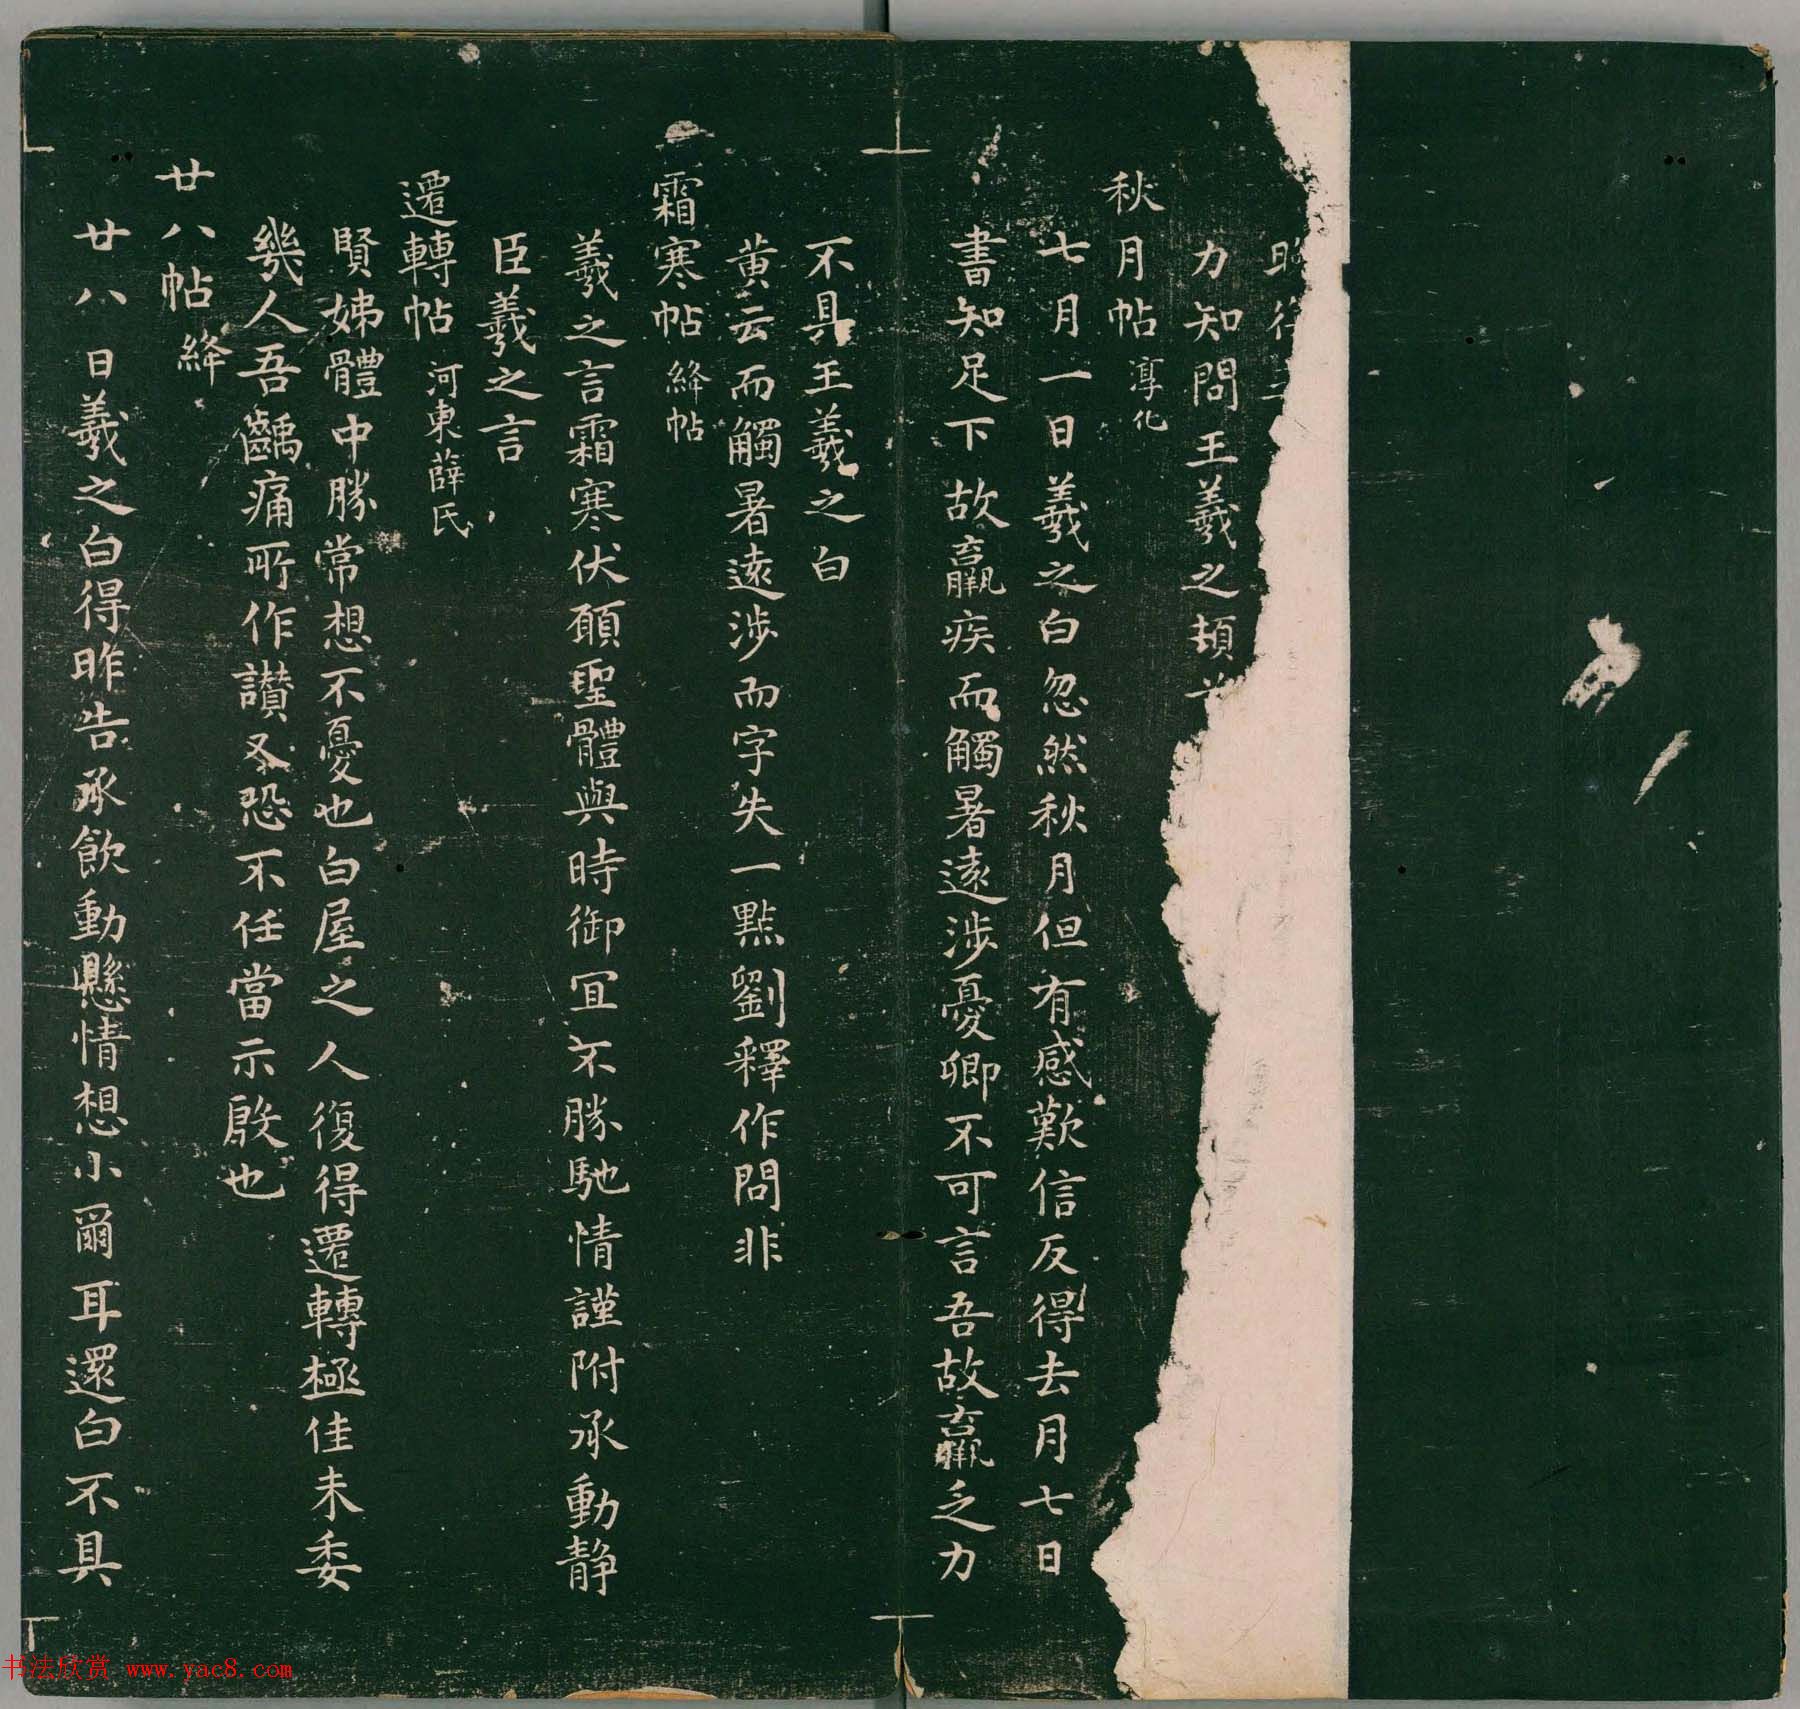 力知問王羲之頓
秋月帖 淳化
七月一日羲之白忽然秋月但有感歎信反得去月七日
書知足下故羸疾而觸暑遠涉憂卿不可言吾故羸乏力
不具王羲之白
黄云而觸暑遠涉而字失一點劉釋作問非
霜寒帖 絳帖
羲之言霜寒伏願聖體與時御宜不勝馳情謹附承動静
臣羲之言
遷轉帖 河東薛氏
賢姊體中勝常想不憂也白屋之人復得遷轉極佳未委
幾人吾齲痛所作讃又恐不任當示殷也
廿八帖 絳
廿八日羲之白得昨告承飲動懸情想小爾耳還白不具
书法欣赏 www.yac8.com